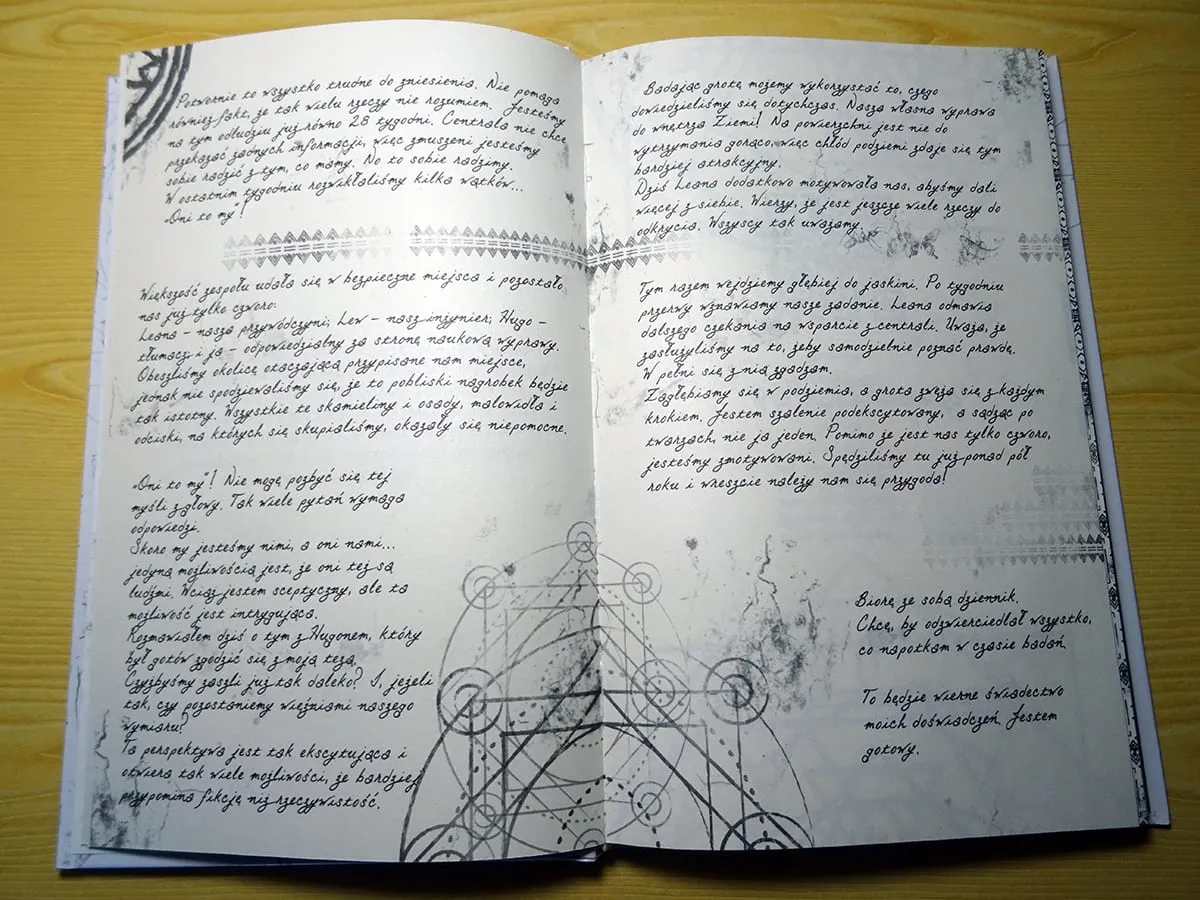 Potwornie to wszystko trudne do zniesienia. Nie pomaga
również fakt, że tak wielu rzeczy nie rozumiem. Jesteśmy
na tym odludziu już równo 28 tygodni. Centrala nie chce
przekazać żadnych informacji, więc zmuszeni jesteśmy
sobie radzić z tym, co mamy. No to sobie radzimy.
W ostatnim tygodniu rozwikłaliśmy kilka wątków...
„Oni to my”!
Większość zespołu udała się w bezpieczne miejsca i pozostało
nas już tylko czworo:
Leana – nasza przywódczyni; Lew – nasz inżynier; Hugo –
tłumacz i ja – odpowiedzialny za stronę naukową wyprawy.
Obeszliśmy okolicę otaczającą przypisane nam miejsce,
jednak nie spodziewaliśmy się, że to pobliski nagrobek będzie
tak istotny. Wszystkie te skamieliny i osady, malowidła i
odciski, na których się skupialiśmy, okazały się niepomocne.
„Oni to my”! Nie mogę pozbyć się tej
myśli z głowy. Tak wiele pytań wymaga
odpowiedzi.
Skoro my jesteśmy nimi, a oni nami...
jedyną możliwością jest, że oni też są
ludźmi. Wciąż jestem sceptyczny, ale ta
możliwość jest intrygująca.
Rozmawiałem dziś o tym z Hugonem, który
był gotów zgodzić się z moją tezą.
Czyżbyśmy zaszli już tak daleko? I, jeżeli
tak, czy pozostaniemy więźniami naszego
wymiaru?
Ta perspektywa jest tak ekscytująca i
otwiera tak wiele możliwości, że bardziej
przypomina fikcję niż rzeczywistość.
Badając grotę możemy wykorzystać to, czego
dowiedzieliśmy się dotychczas. Nasza własna wyprawa
do wnętrza Ziemi! Na powierzchni jest nie do
wytrzymania gorąco, więc chłód podziemi zdaje się tym
bardziej atrakcyjny.
Dziś Leana dodatkowo motywowała nas, abyśmy dali
więcej z siebie. Wierzy, że jest jeszcze wiele rzeczy do
odkrycia. Wszyscy tak uważamy.
Tym razem wejdziemy głębiej do jaskini. Po tygodniu
przerwy wznawiamy nasze zadanie. Leana odmawia
dalszego czekania na wsparcie z centrali. Uważa, że
zasłużyliśmy na to, żeby samodzielnie poznać prawdę.
W pełni się z nią zgadzam.
Zagłębiamy się w podziemia, a grota zwęża się z każdym
krokiem. Jestem szalenie podekscytowany, a sądząc po
twarzach, nie ja jeden. Pomimo że jest nas tylko czworo,
jesteśmy zmotywowani. Spędziliśmy tu już ponad pół
roku i wreszcie należy nam się przygoda!
Biorę ze sobą dziennik.
Chcę, by odzwierciedlał wszystko,
co napotkam w czasie badań.
To będzie wierne świadectwo
moich doświadczeń. Jestem
gotowy.